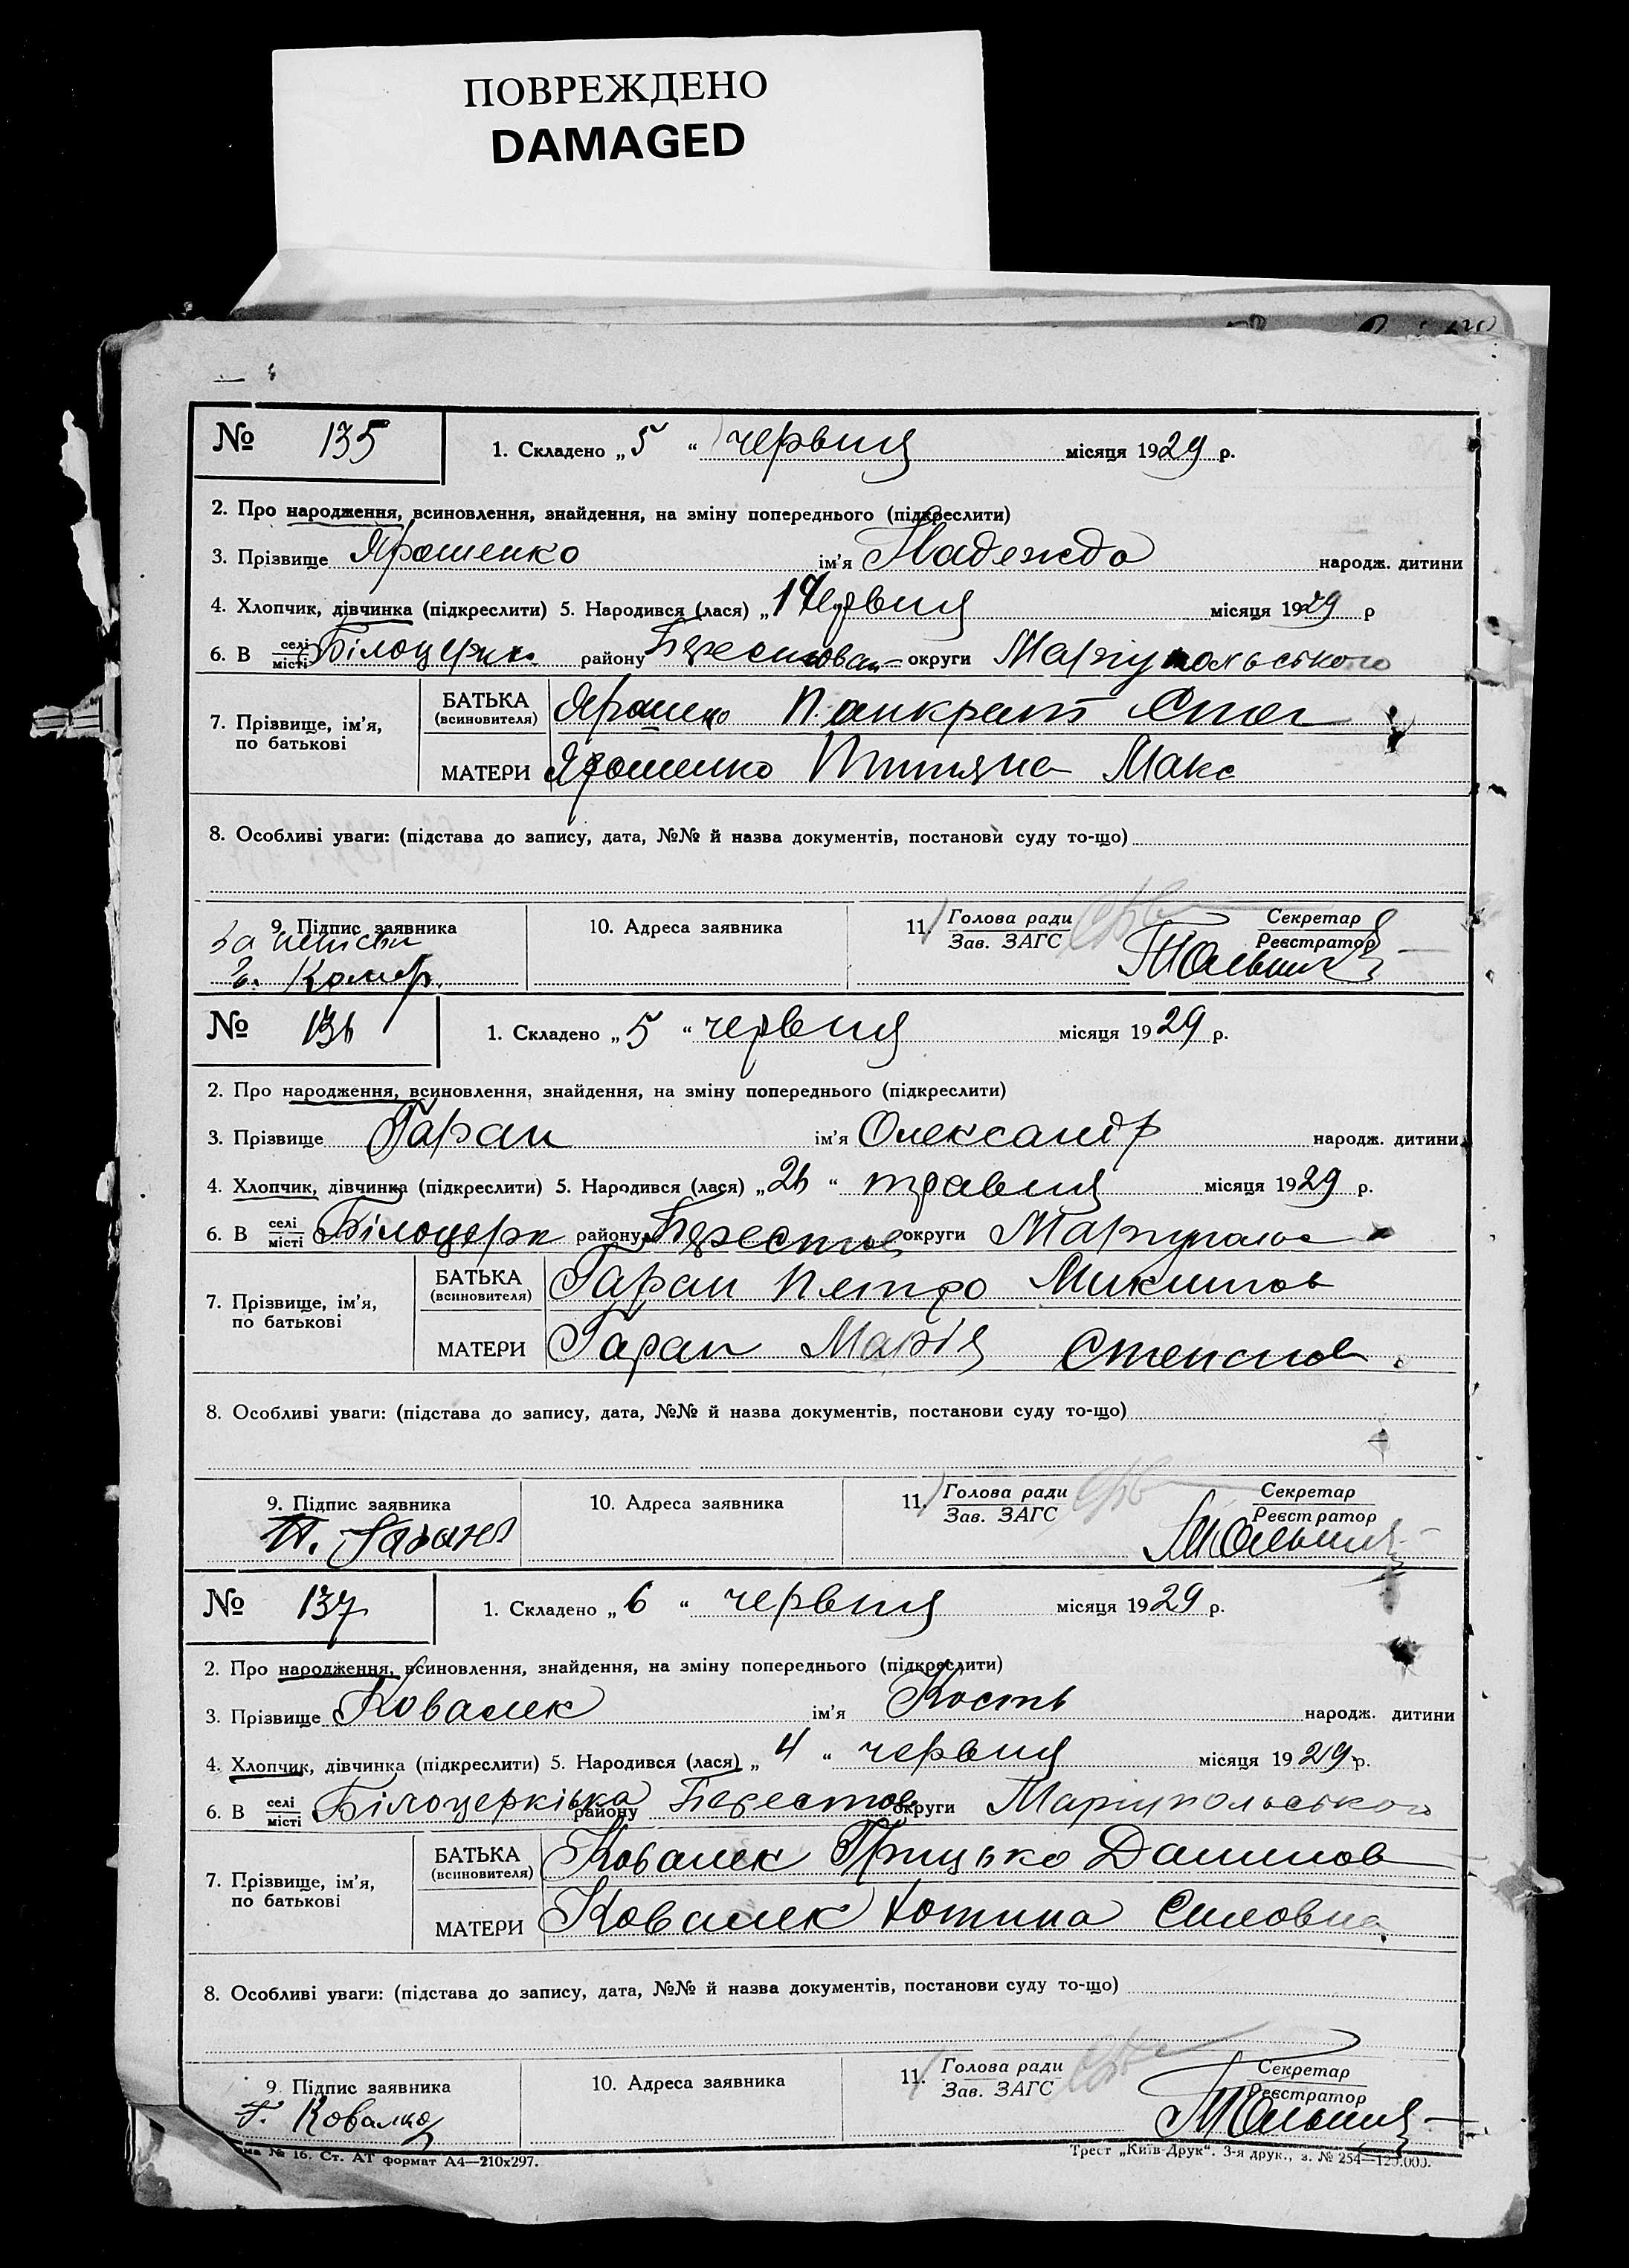 ПОВРЕЖДЕНО
DAMAGED
№ 135 1. Складено „ 5 “ червня місяця 1929 р.
2. Про народження, всиновлення, знайдення, на зміну попереднього (підкреслити)
3. Прізвище Ярошенко ім'я Надежда народж. дитини
4. Хлопчик, дівчинка (підкреслити) 5. Народився (лася) „ 1 червня місяця 1929 р
6. В селі місті району округи Маріупольського
7. Прізвище, ім'я, по батькові
БАТЬКА (всиновителя) Панкрат
МАТЕРИ Ярошенко Макс
8. Особливі уваги: (підстава до запису, дата, №№ й назва документів, постанови суду то-що)
9. Підпис заявника 10. Адреса заявника 11. Голова ради Зав. ЗАГС Секретар Реєстратор
№ 136 1. Складено „ 5 “ червня місяця 1929 р.
2. Про народження, всиновлення, знайдення, на зміну попереднього (підкреслити)
3. Прізвище Гаран ім'я Олександр народж. дитини
4. Хлопчик, дівчинка (підкреслити) 5. Народився (лася) „ 26 “ травня місяця 1929 р.
6. В селі місті Білоцерк району Берестов округи
7. Прізвище, ім'я, по батькові
БАТЬКА (всиновителя) Гаран Петро Микитов
МАТЕРИ Гаран Марія Степанов
8. Особливі уваги: (підстава до запису, дата, №№ й назва документів, постанови суду то-що)
9. Підпис заявника 10. Адреса заявника 11. Голова ради Зав. ЗАГС Секретар Реєстратор
№ 137 1. Складено „ 6 “ червня місяця 1929 р.
2. Про народження, всиновлення, знайдення, на зміну попереднього (підкреслити)
3. Прізвище Ковалек ім'я Кость народж. дитини
4. Хлопчик, дівчинка (підкреслити) 5. Народився (лася) „ 4 “ червня місяця 1929 р.
6. В селі місті Білоцерківка району Берестов округи Маріупольського
7. Прізвище, ім'я, по батькові
БАТЬКА (всиновителя) Ковалек Грицько Данилов
МАТЕРИ Ковалек Хотина Силовна
8. Особливі уваги: (підстава до запису, дата, №№ й назва документів, постанови суду то-що)
9. Підпис заявника 10. Адреса заявника 11. Голова ради Зав. ЗАГС Секретар Реєстратор
Г.
№ 16. Ст. АТ формат А4—210х297. Трест „Київ-Друк“. 3-я друк., з. № 254—125.000.